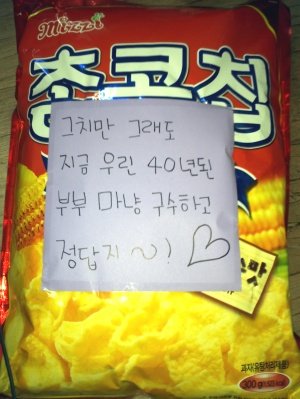 Mizzi
춈콘칩
그치만 그래도
지금 우린 40년된
부부 마냥 구수하고
정답지 ~! ♡
과자(유탕처리제품)
300g